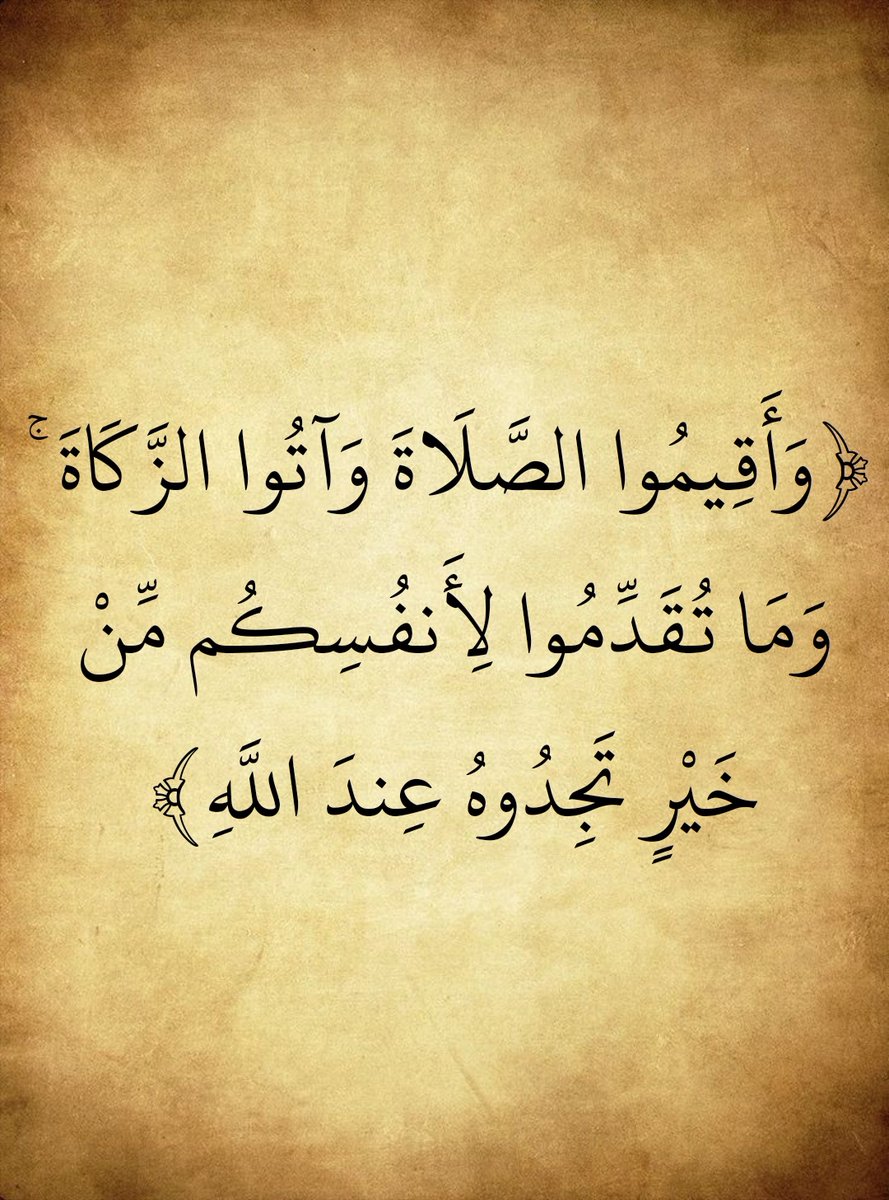 ﴿وَأَقِيمُوا الصَّلَاةَ وَآتُوا الزَّكَاةَ ۚ
وَمَا تُقَدِّمُوا لِأَنفُسِكُم مِّنْ
خَيْرٍ تَجِدُوهُ عِندَ اللَّهِ﴾